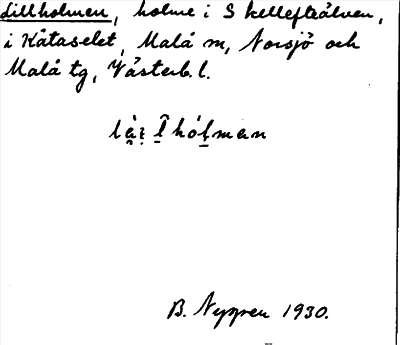 Lillholmen, holme i Skellefteälven,
i Kåtaselet, Malå m, Norsjö och
Malå tg, Västerb. l.
B. Nygren 1930.